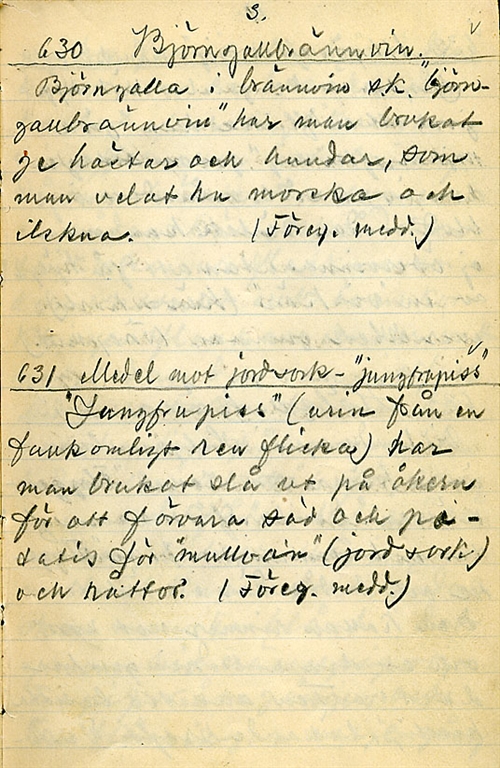 3.
630 Björngallbrännvin.
Björngalla i brännvin sk. "björn-
gallbrännvin" har man brukat
ge hästar och hundar, som
man velat ha morska och
ilskna. (Föreg. medd.)
631 Medel mot jordsork - "jungfrupiss"
"Jungfrupiss" (urin från en
fullkomligt ren flicka) har
man brukat slå ut på åkern
för att förvara säd och po-
tatis för "mullvan" (jordsork)
och råttor. (Föreg. medd.)